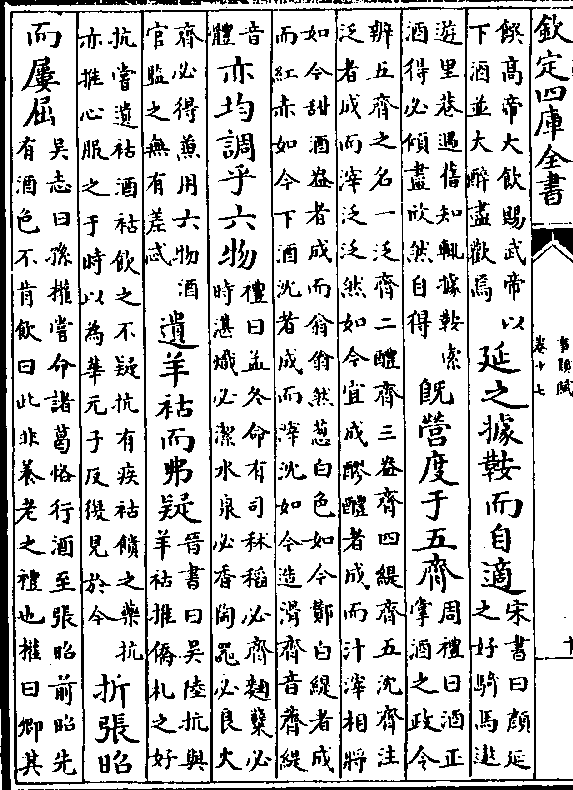 欽定四庫全書
事類賦
卷十七
餱高帝大飲賜武帝以
下酒並大醉盡歡焉
延之據鞍而自適
宋書曰顔延
之好騎馬遨
遊里巷遇舊知輒據鞍索
酒得必傾盡欣然自得
既營度于五齊
周禮曰酒正
掌酒之政令
辨五齊之名一泛齊二醴齊三盎齊四緹齊五沈齊注
泛者成而滓泛泛然如今宜成醪醴者成而汁滓相將
如今甜酒盎者成而翁翁然葱白色如今鄼白緹者成
而紅赤如今下酒沈者成而滓沈如今造清齊音薺緹
音
體
亦均調乎六物
禮曰孟冬命有司秫稻必齊麴糵必
時湛熾必潔水泉必香陶器必良火
齊必得兼用六物酒
官監之無有差忒
遺羊祜而弗疑
晉書曰吳陸抗與
羊祜推僑札之好
抗嘗遺祜酒祜飲之不疑抗有疾祜饋之藥抗
亦推心服之于時以為華元子反復見於今
折張昭
而屢屈
吳志曰孫權嘗命諸葛恪行酒至張昭前昭先
有酒色不肯飲曰此非養老之禮也權曰卿其